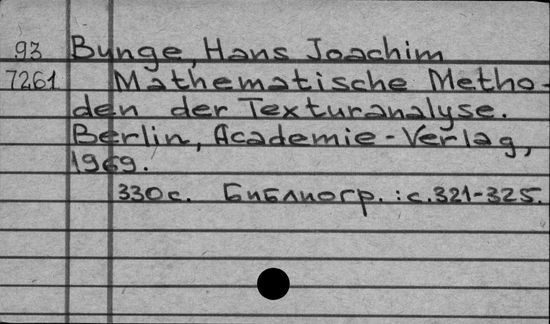 93 Bunge, Hans Joachim
7261 Mathematische Metho-
den der Texturanalyse.
Berlin, Academie-Verlag,
1969.
330 с. Библиогр.: с. 321-325.